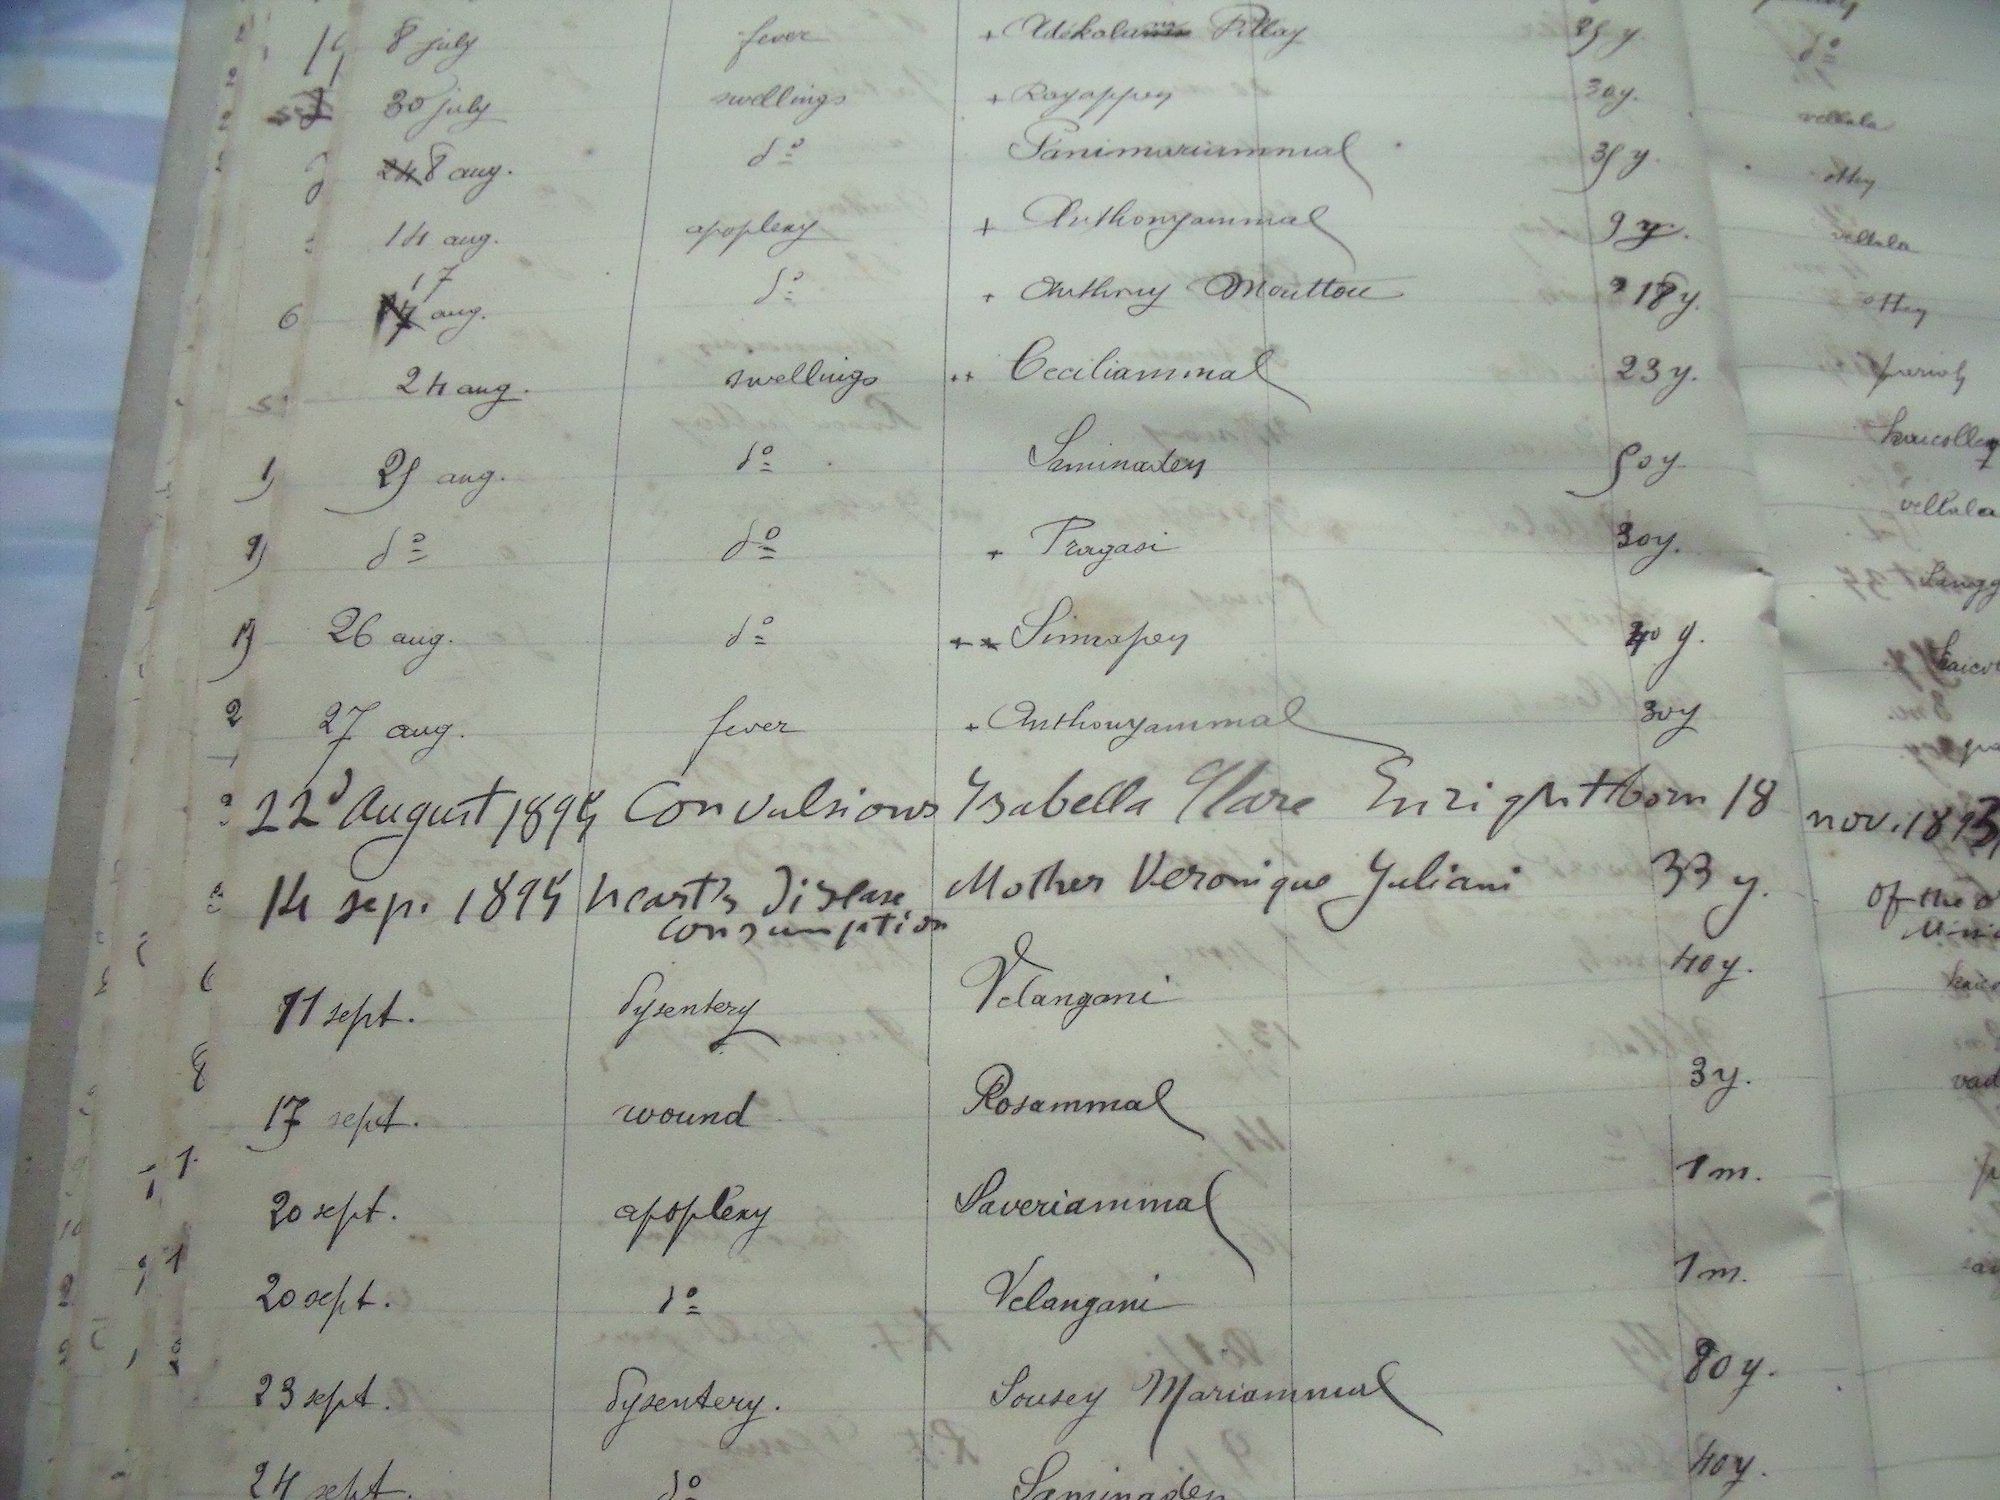 8 july fever + Adékalam Pillay 35 y. do
30 july swellings + Rayappen 30 y. vellala
8 aug. do Panimariammal 35 y. ottey
14 aug. apoplexy + Anthonyammal 9 y. vellala
17 aug. do + Anthony Mouttou 18 y. ottey
24 aug. swellings ++ Ceciliammal 23 y. pariah
25 aug. do Saminaden 50 y kaicolley
do do + Pragasi 30 y. vellala
26 aug. do ++ Sinnapen 40 y.
27 aug. fever + Anthonyammal 30 y
22d August 1894 Convulsions Isabella Clare Enright born 18 nov. 1893
14 sep. 1894 heart's Disease Mother Veronique Juliani 33 y. of the
consumption
11 sept. dysentery Velangani 40 y.
17 sept. wound Rosammal 3 y.
20 sept. apoplexy Saveriammal 1 m.
20 sept. do Velangani 1 m.
23 sept. dysentery. Sousey Mariammal 80 y.
24 sept. do Saminaden 40 y.